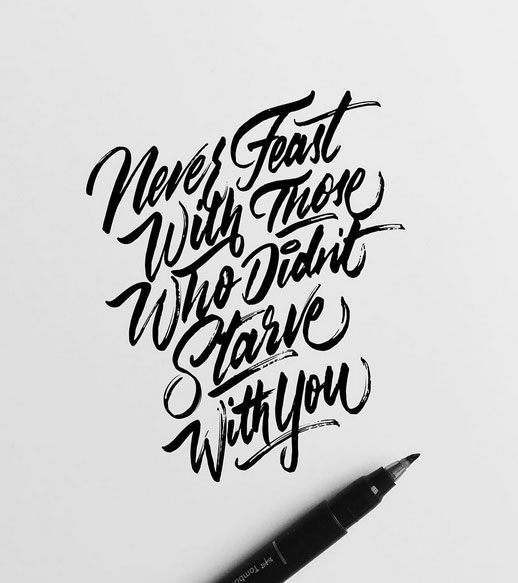 Never Feast
With Those
Who Didn't
Starve
With You
Tombow